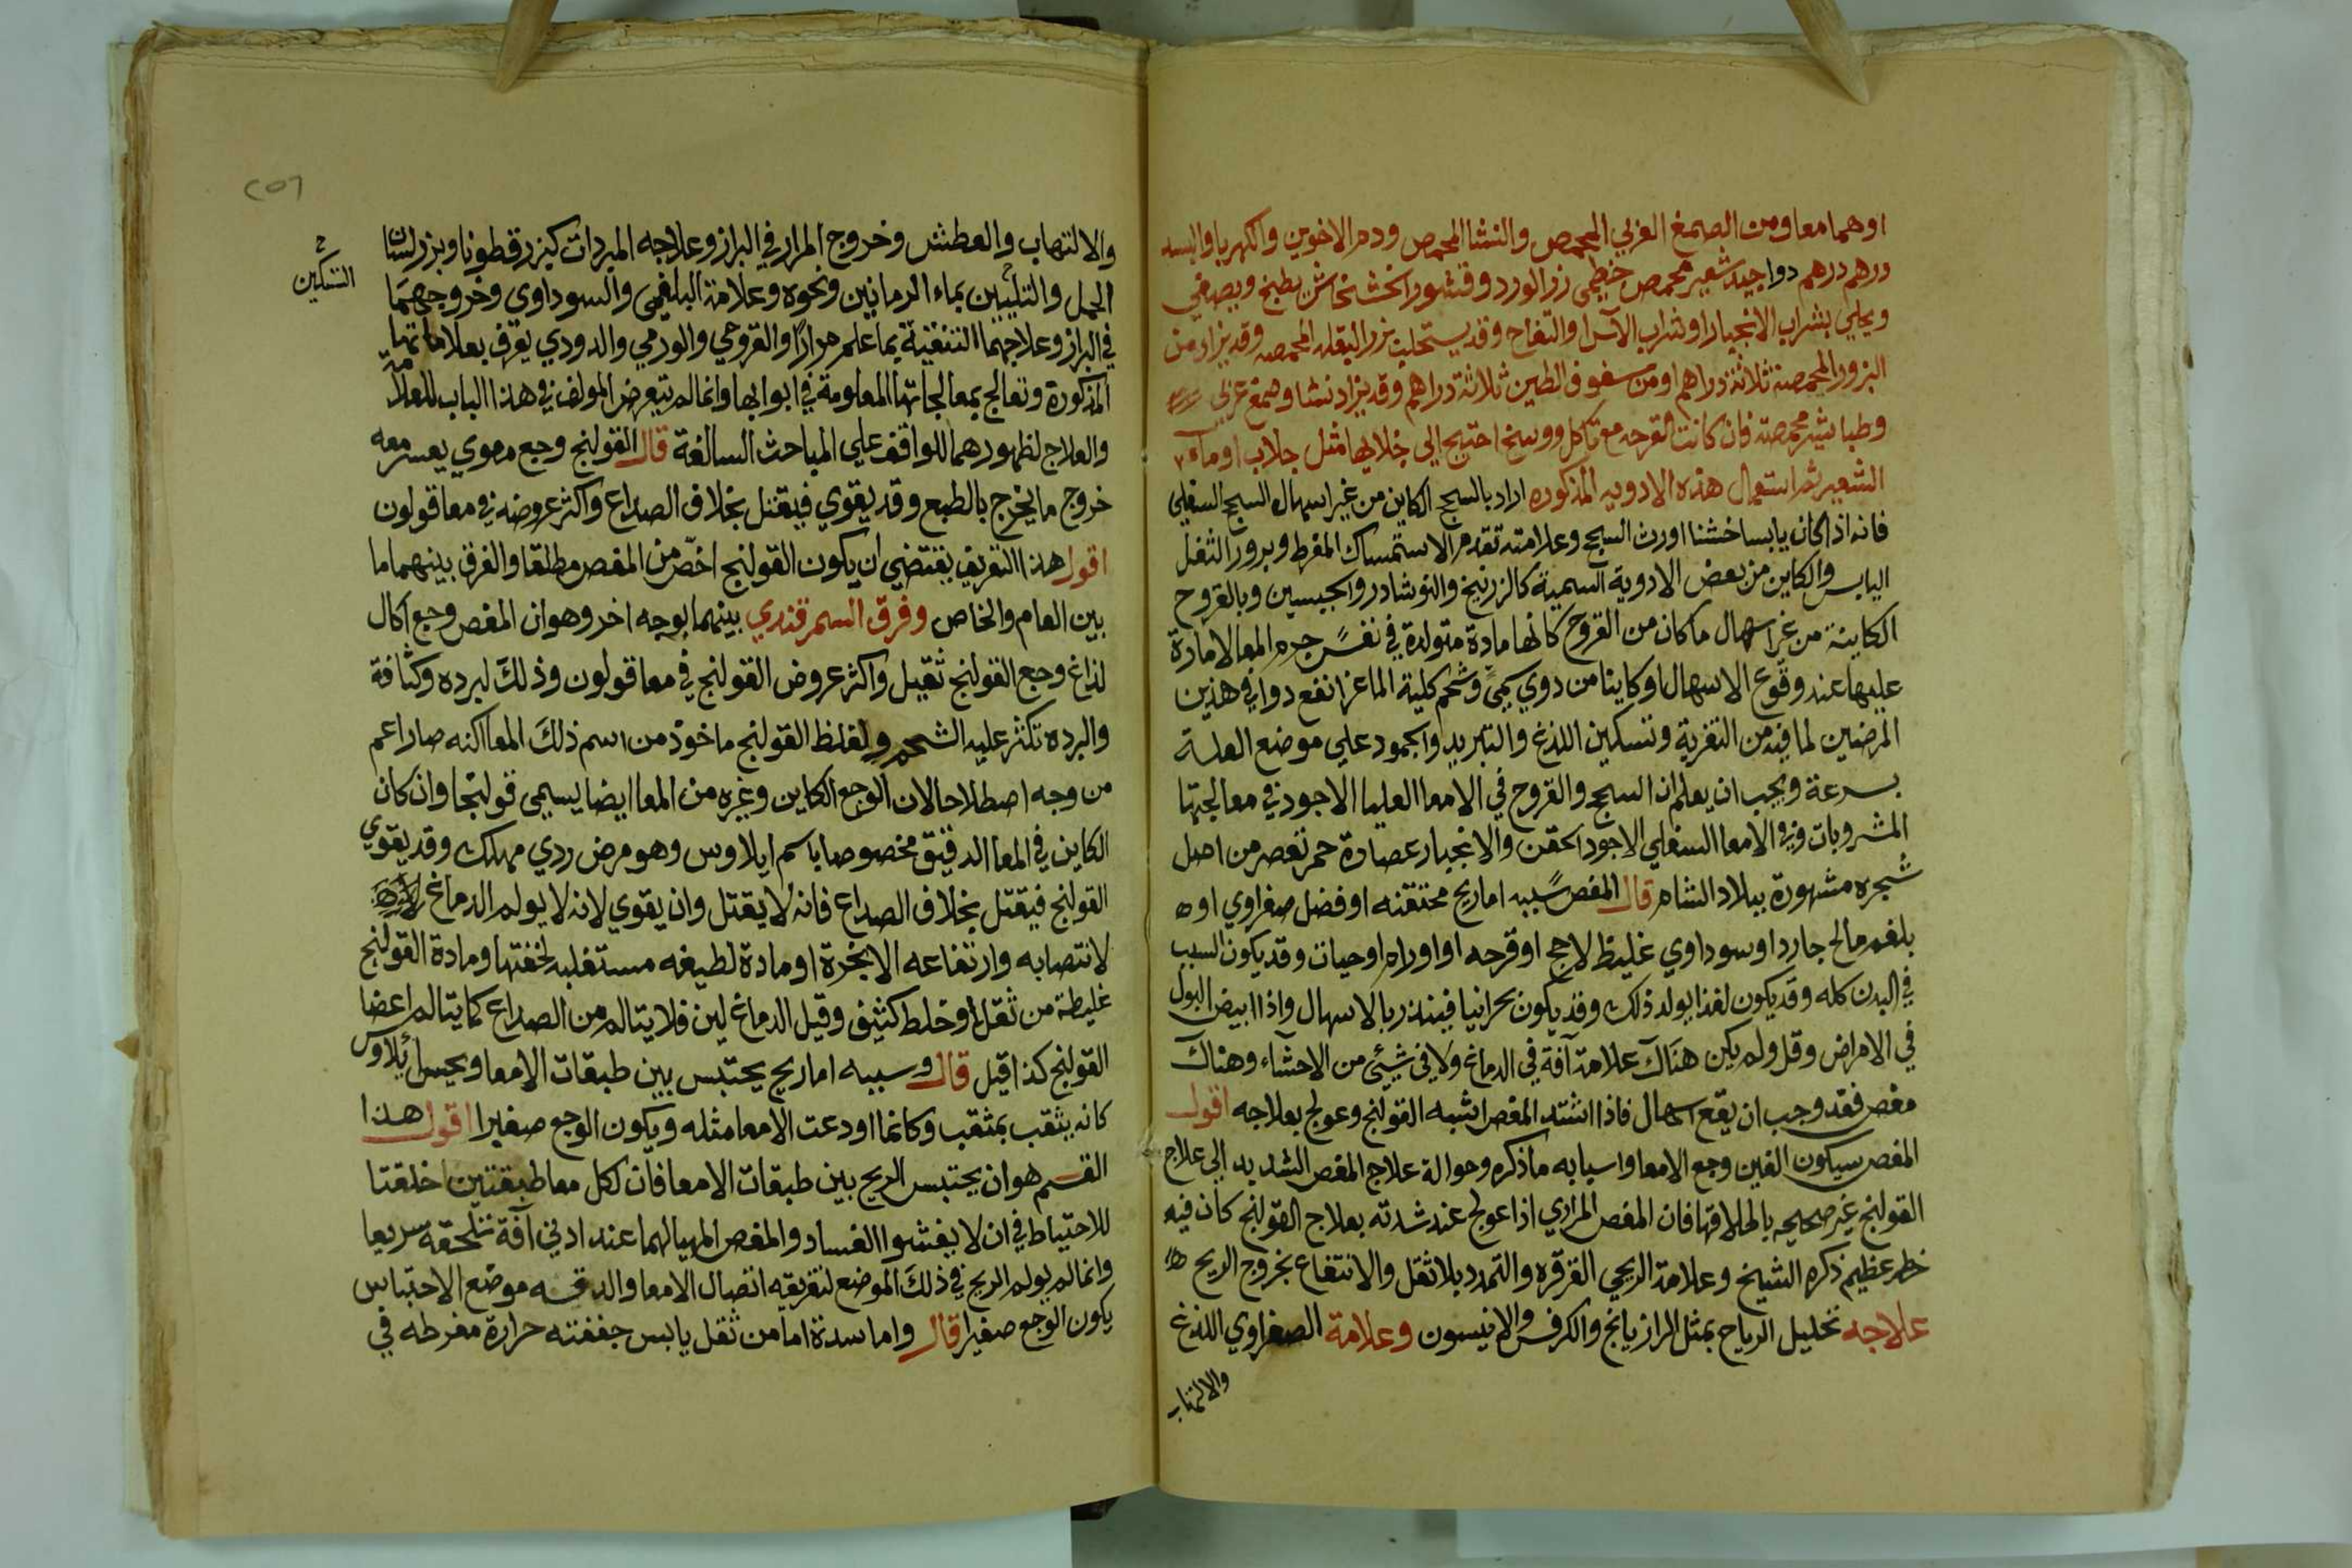 اوهما معا ومن الصمغ العربي المحمص والنشا المحمص ودم الاخوين والكهربا والبسد
درهم درهم دوا جيد شعير محمص خطمي زر الورد وقشور الخشخاش يطبخ ويصفي
ويحلي بشراب الانجبار او شراب الآس او التفاح وقد يستحلب بزر البقله المحمصه وقد يزاد من
البزور المحمصة ثلاثة دراهم او من سفوف الطين ثلاثة دراهم وقد يزاد نشا وصمغ عربي
وطباشير محمصة فان كانت القرحه مع تاكل ووسخ احتيج الي جلايها مثل جلاب او ماء
الشعير ثم استعمال هذه الادويه المذكوره اراد بالسحج الكاين من غير اسهال السحج السفلي
فانه اذا كان يابسا خشنا اورث السحج وعلامته تقدم الاستمساك المفرط وبروز الثفل
اليابس والكاين من بعض الادوية السمية كالزرنيخ والنوشادر والجبسين وبالقروح
الكاينة من غير اسهال ما كان من القروح كانها مادة متولدة في نفس جرم المعا لا مادة
عليها عند وقوع الاسهال او كاينا من دوي كمي وشحم كلية الماعز انفع دوا في هذين
المرضين لما فيه من التغرية وتسكين اللذع والتبريد والجمود علي موضع العلة
بسرعة ويجب ان يعلم ان السحج والقروح في الامعا العليا الاجود في معالجتها
المشروبات وفي الامعا السفلي الاجود الحقن والانجبار عصارة حمر تعصر من اصل
شجره مشهورة ببلاد الشام قال المغص سببه اما ريح محتقنه او فضل صفراوي او
بلغم مالح حارد او سوداوي غليظ لاحج او قرحه او اورام او حيات وقد يكون السبب
في البدن كله وقد يكون لغذا يولد ذلك وقد يكون بحرانيا فينذر بالاسهال واذا ابيض البول
في الامراض وقل ولم يكن هناك علامة آفة في الدماغ ولا في شيئ من الاحشاء وهناك
مغص فقد وجب ان يقع اسهال فاذا اشتد المغص اشبه القولنج وعولج بعلاجه اقول
المغص بسكون الغين وجع الامعا واسبابه ما ذكره وحوالة علاج المغص الشديد الي علاج
القولنج غير صحيحه باطلاقها فان المغص المراري اذا عولج عند شدته بعلاج القولنج كان فيه
خطر عظيم ذكره الشيخ وعلامة الريحي القرقره والتمدد بلا ثقل والانتفاع بخروج الريح
علاجه تحليل الرياح بمثل الرازيانج والكرفس والانيسون وعلامة الصفراوي اللذع
والالتهاب
والالتهاب والعطش وخروج المرار في البراز وعلاجه المبردات كبزر قطونا وبزر لسان
التسكين
الحمل والتليين بماء الرمانين ونحوه وعلامة البلغمي والسوداوي وخروجهما
في البراز وعلاجهما التنقية بما علم مرارا والقروحي والورمي والدودي يعرف بعلاماتها
المذكورة وتعالج بمعالجاتها المعلومة في ابوابها وانما لم يتعرض المولف في هذا الباب للعلامة
والعلاج لظهورهما للواقف علي المباحث السالفة قال القولنج وجع معوي يعسر معه
خروج ما يخرج بالطبع وقد يقوي فيقتل بخلاف الصداع واكثر عروضه في معا قولون
اقول هذا التعريف يقتضي ان يكون القولنج اخص من المغص مطلقا والفرق بينهما ما
بين العام والخاص وفرق السمرقندي بينهما بوجه اخر وهو ان المغص وجع اكال
لذاع وجع القولنج ثقيل واكثر عروض القولنج في معا قولون وذلك لبرده وكثافة
والبرده تكثر عليه الشحم ولفظ القولنج ماخوذ من اسم ذلك المعا لكنه صار اعم
من وجه اصطلاحا لان الوجع الكاين وغيره من المعا ايضا يسمي قولنجا وان كان
الكاين في المعا الدقيق مخصوصا باسم ايلاوس وهو مرض ردي مهلك وقد يقوي
القولنج فيقتل بخلاف الصداع فانه لا يقتل وان يقوي لانه لا يولم الدماغ
لانتصابه وارتفاعه الابخرة او مادة لطيفه مستغلبه لخفتها ومادة القولنج
غليظة من ثفل او خلط كثيف وقيل الدماغ لين فلا يتالم من الصداع كما يتالم اعضا
القولنج كذا قيل قال وسببه اما ريح يحتبس بين طبقات الامعا ويحس ايلاوس
كانه يثقب بمثقب وكانما اودعت الامعا مثله ويكون الوجع صغيرا اقول هذا
القسم هو ان يحتبس الريح بين طبقات الامعا فان لكل معا طبقتين اخلقتا
للاحتياط في ان لا يفشوا الفساد والمغص المهيا لهما عند ادني آفة تلحقه سريعا
وانما لم يولم الريح في ذلك الموضع لتفريقه اتصال الامعا والدقه موضع الاحتباس
يكون الوجع صغيرا قال واما سدة اما من ثفل يابس جففته حرارة مفرطه في